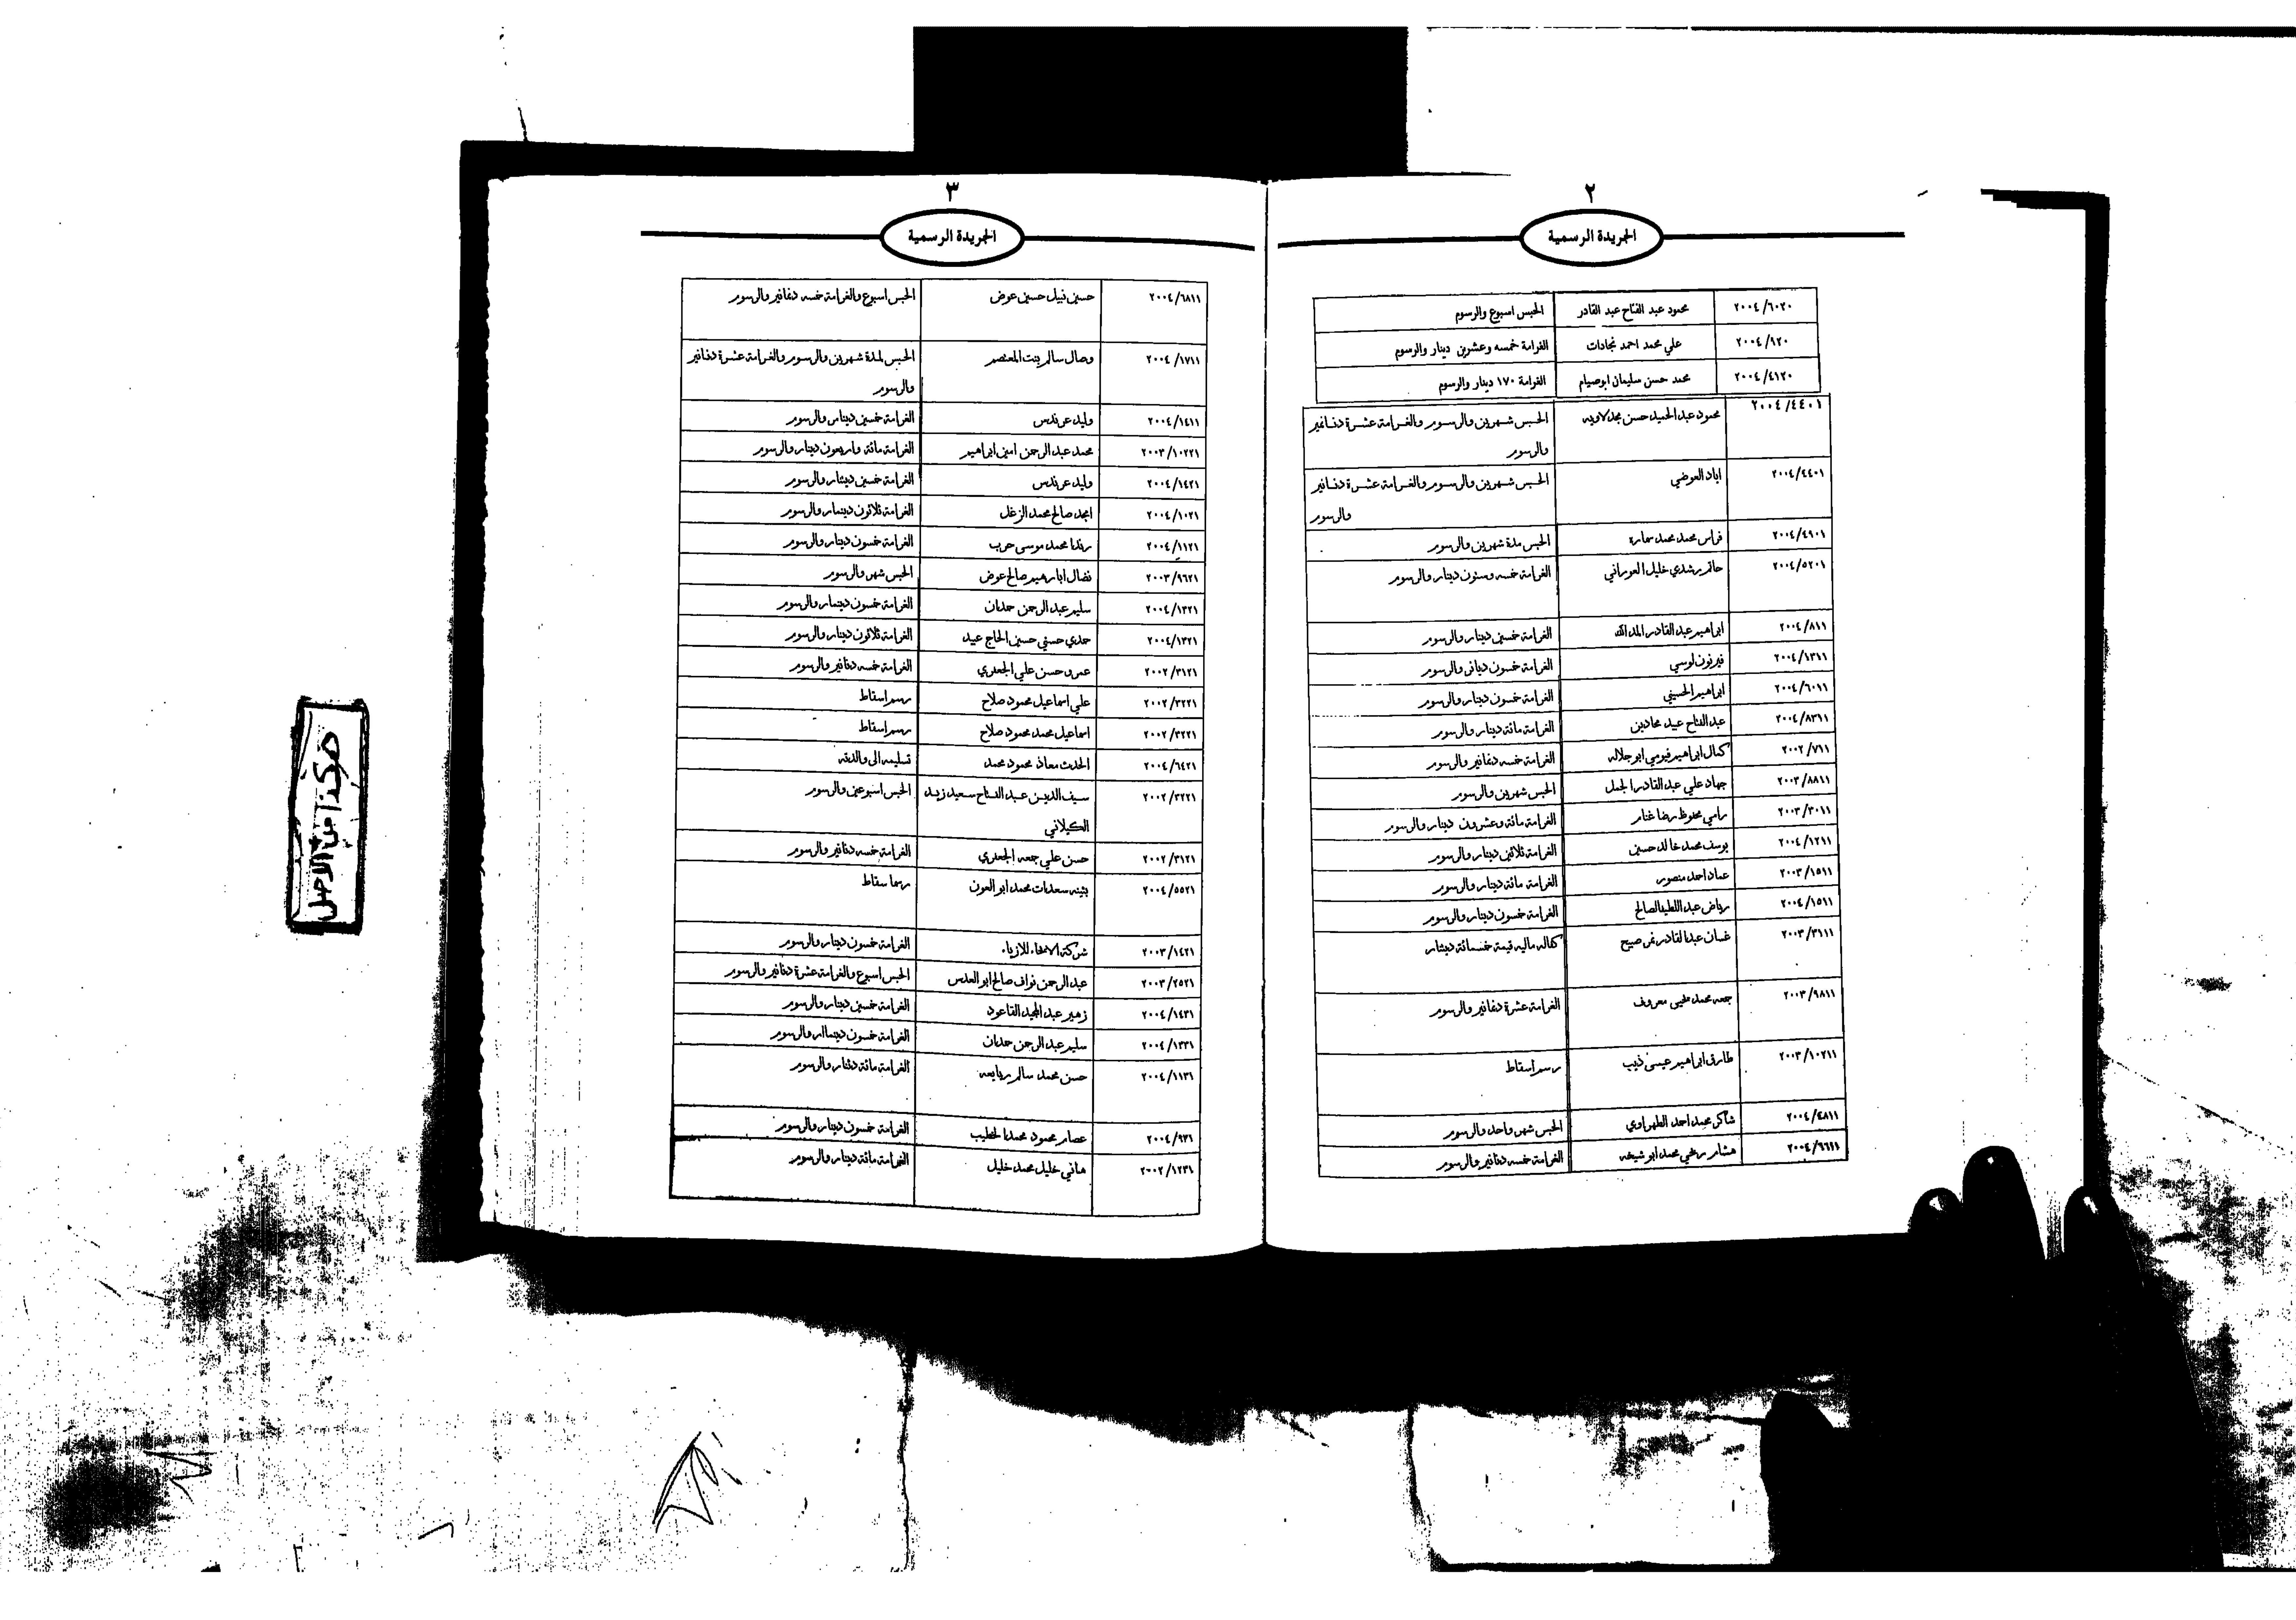 ٢
الجريدة الرسمية
٢٠٠٤/٦٠٢٠ محمود عبد الفتاح عبد القادر الحبس اسبوع والرسوم
٢٠٠٤/٩٢٠ علي محمد احمد نجادات الغرامة خمسه وعشرين دينار والرسوم
٢٠٠٤/٤١٢٠ محمد حسن سليمان ابوصيام الغرامة ١٧٠ دينار والرسوم
٢٠٠٤/٤٤٠١ محمود عبد الحميد حسن مجدلاويه الحبس شهرين والرسوم والغرامة عشرة دنانير
والرسوم
٢٠٠٤/٤٤٠١ اياد العوضي الحبس شهرين والرسوم والغرامة عشرة دنانير
والرسوم
٢٠٠٤/٤٩٠١ فراس محمد محمد سماره الحبس مدة شهرين والرسوم
٢٠٠٤/٥٢٠١ حاتم رشدي خليل العوراني الغرامة خمسه وستون دينار والرسوم
٢٠٠٤/٨١١ ابراهيم عبد القادر المد الله الغرامة خمسين دينار والرسوم
٢٠٠٤/١٣١١ فيرنون لوسي الغرامة خمسون دينار والرسوم
٢٠٠٤/٦٠١١ ابراهيم الحسيني الغرامة خمسون دينار والرسوم
٢٠٠٤/٨٣١١ عبد الفتاح عبيد محادين الغرامة مائة دينار والرسوم
٢٠٠٢/٧١١ كمال ابراهيم فيومي ابو جلاله الغرامة خمسه دنانير والرسوم
٢٠٠٣/٨٨١١ جهاد علي عبد القادر الجمل الحبس شهرين والرسوم
٢٠٠٣/٣٠١١ رامي محفوظ رضا غنام الغرامة مائة وعشرون دينار والرسوم
٢٠٠٤/١٢١١ يوسف محمد خالد حسين الغرامة ثلاثين دينار والرسوم
٢٠٠٣/١٥١١ عماد احمد منصور الغرامة مائة دينار والرسوم
٢٠٠٤/١٥١١ رياض عبد اللطيف الصالح الغرامة خمسون دينار والرسوم
٢٠٠٣/٣١١١ غسان عبد القادر نمر صبيح كفاله ماليه قيمة خمسمائة دينار
٢٠٠٣/٩٨١١ جمعه محمد معروف الغرامة عشرة دنانير والرسوم
٢٠٠٣/١٠٢١١ طارق ابراهيم عيسى ذيب رسم اسقاط
٢٠٠٤/٤٨١١ شاكر محمد احمد الطهراوي الحبس شهر واحد والرسوم
٢٠٠٤/٦٦١١ هشام ربحي محمد ابو شيخه الغرامة خمسه دنانير والرسوم
٣
الجريدة الرسمية
٢٠٠٤/٦٨١١ حسين نبيل حسين عوض الحبس اسبوع والغرامة خمسه دنانير والرسوم
٢٠٠٤/١٧١١ وصال سالم بنت المعتصم الحبس لمدة شهرين والرسوم والغرامة عشرة دنانير
والرسوم
٢٠٠٤/١٤١١ وليد عرندس الغرامة خمسين دينار والرسوم
٢٠٠٣/١٠٢٢١ محمد عبد الرحمن امين ابراهيم الغرامة مائة واربعون دينار والرسوم
٢٠٠٤/١٤٢١ وليد عرندس الغرامة خمسين دينار والرسوم
٢٠٠٤/١٠٢١ امجد صالح محمد الزغل الغرامة ثلاثون دينار والرسوم
٢٠٠٤/١١٢١ رندا محمد موسى حرب الغرامة خمسون دينار والرسوم
٢٠٠٣/٩٦٢١ نضال ابارهيم صالح عوض الحبس شهر والرسوم
٢٠٠٤/١٣٢١ سليم عبد الرحمن حمدان الغرامة خمسون دينمار والرسوم
٢٠٠٤/١٣٢١ حمدي حسني حسين الحاج عبيد الغرامة ثلاثون دينار والرسوم
٢٠٠٢/٣١٢١ عمرو حسن علي الجعدري الغرامة خمسه دنانير والرسوم
٢٠٠٢/٣٢٢١ علي اسماعيل محمود صلاح رسم اسقاط
٢٠٠٢/٣٢٢١ اسماعيل محمد محمود صلاح رسم اسقاط
٢٠٠٤/٦٤٢١ الحدث معاذ محمود محمد تسليمه الى والدته
٢٠٠٢/٣٢٢١ سيف الدين عبد الفتاح سعيد زيد الحبس اسبوعين والرسوم
الكيلاني
٢٠٠٢/٣١٢١ حسن علي جمعه الجعدري الغرامة خمسه دنانير والرسوم
٢٠٠٤/٥٥٢١ بثينه سعدات محمد ابو العون رسم اسقاط
٢٠٠٣/١٤٢١ شركة الانحاء للازياء الغرامة خمسون دينار والرسوم
٢٠٠٣/٢٥٢١ عبد الرحمن نواف صالح ابو العدس الحبس اسبوع والغرامة عشرة دنانير والرسوم
٢٠٠٤/١٤٣١ زهير عبد المجيد القاعود الغرامة خمسين دينار والرسوم
٢٠٠٤/١٣٣١ سليم عبد الرحمن حمدان الغرامة خمسون دينمار والرسوم
٢٠٠٤/١١٣١ حسن محمد سالم ربايعه الغرامة مائة دينار والرسوم
٢٠٠٤/٩٣١ عصام محمود محمد الخطيب الغرامة خمسون دينار والرسوم
٢٠٠٢/١٢٣١ هاني خليل محمد خليل الغرامة مائة دينار والرسوم
هكذا من الاصل